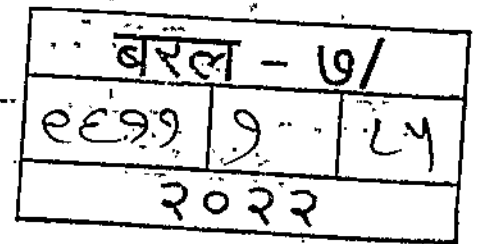 बरल - ७/
९६११ १ ८५
२०२२